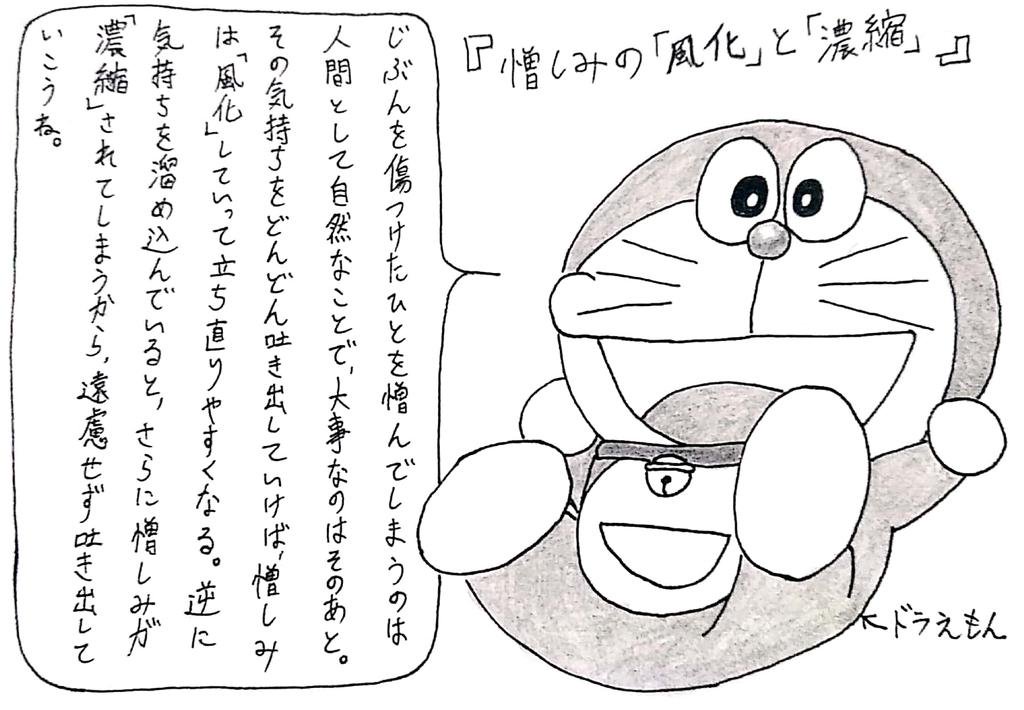 『憎しみの「風化」と「濃縮」』
じぶんを傷つけたひとを憎んでしまうのは
人間として自然なことで、大事なのはそのあと。
その気持ちをどんどん吐き出していけば、憎しみ
は「風化」していって立ち直りやすくなる。逆に
気持ちを溜め込んでいると、さらに憎しみが
「濃縮」されてしまうから、遠慮せず吐き出して
いこうね。
←ドラえもん